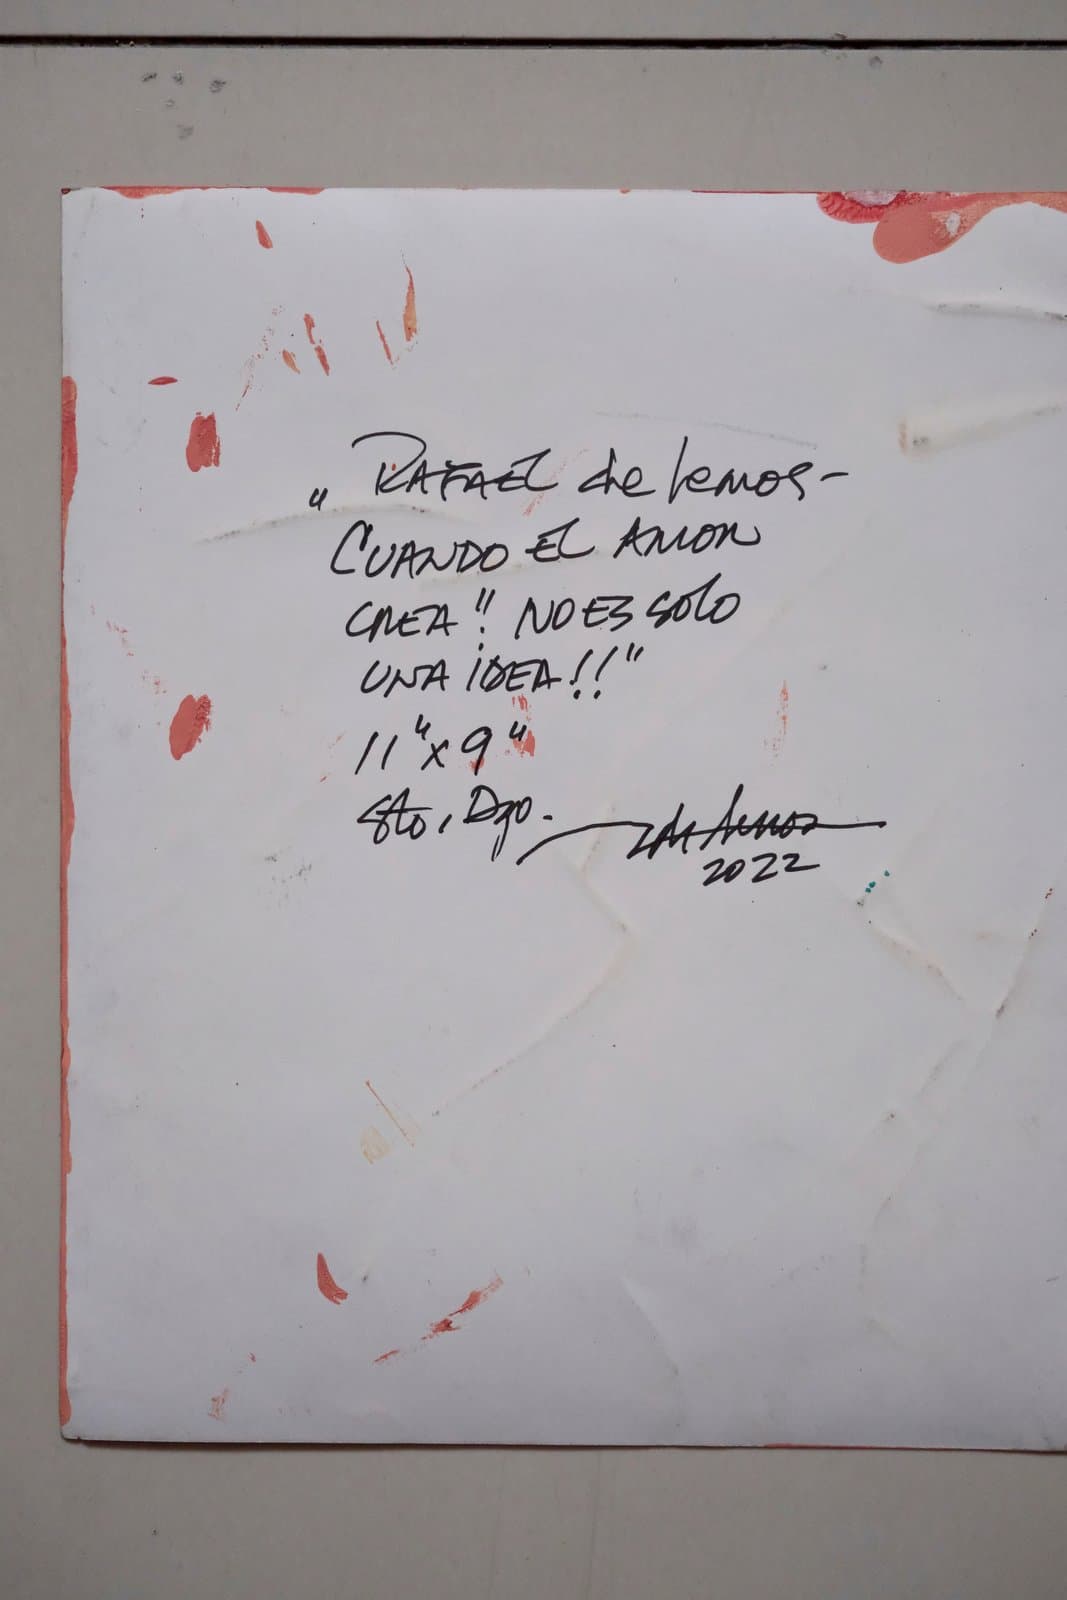 RAFAEL de lemos-
" CUANDO EL AMOR
CREA!! NO ES SOLO
UNA IDEA!!"
11"x9"
Sto, Dgo.
2022